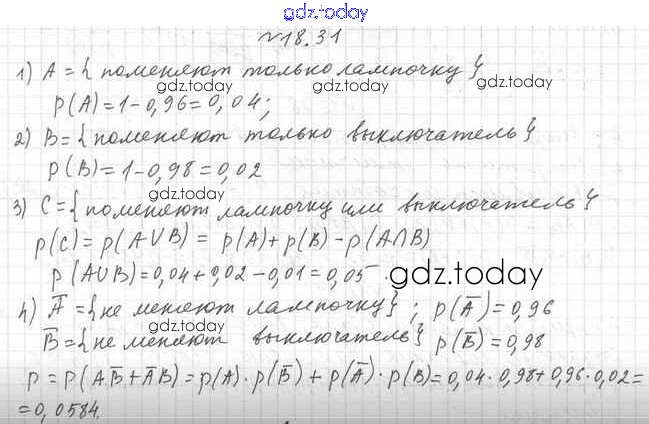 gdz.today
№18.31
1) A = { поменяют только лампочку }
gdz.today
p(A)=1-0,96=0,04;
gdz.today
2) B = { поменяют только выключатель }
p(B)=1-0,98=0,02
gdz.today
3) C = { поменяют лампочку или выключатель }
gdz.today
p(C)=p(A∪B) = p(A)+p(B)-p(A∩B)
p(A∪B)=0,04+0,02-0,01=0,05.
gdz.today
4) A̅ = { не меняют лампочку } ; p(A̅)=0,96
gdz.today
B̅ = { не меняют выключатель } p(B̅)=0,98
p = p(AB̅+A̅B)=p(A)·p(B̅)+p(A̅)·p(B)=0,04·0,98+0,96·0,02=
=0,0584.
gdz.today